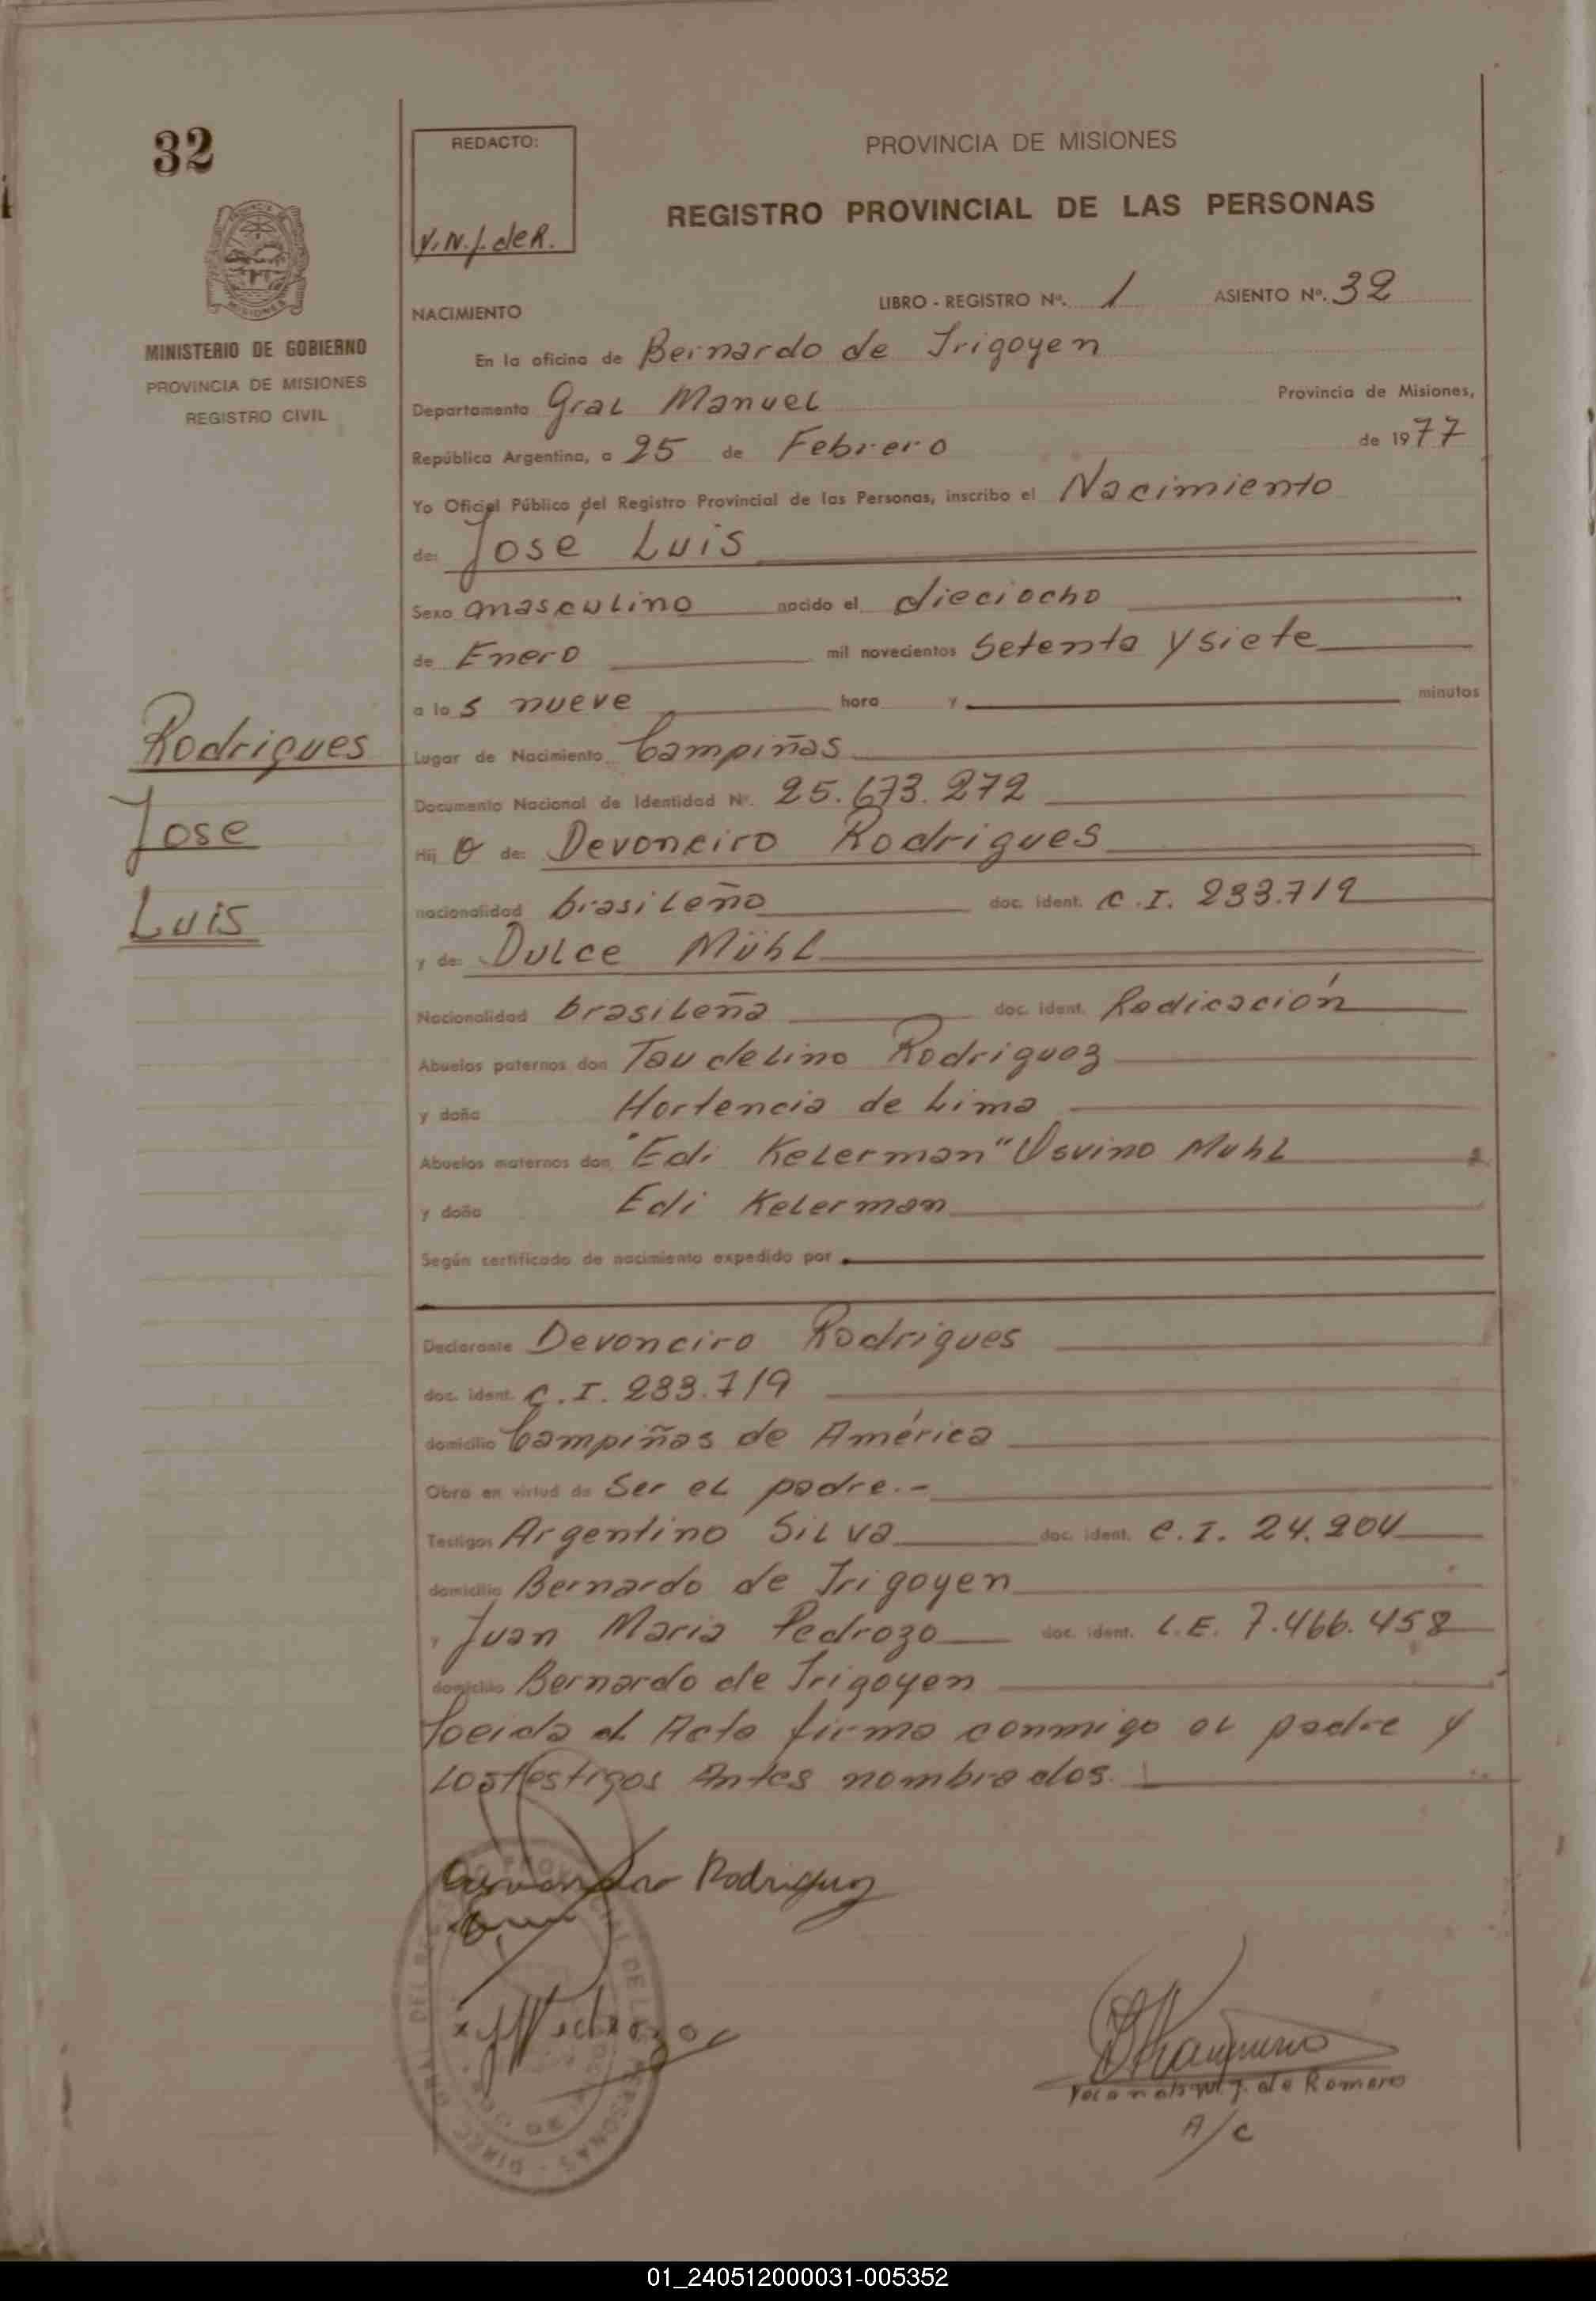 32
REDACTO:
Y.N.J. de R.
PROVINCIA DE MISIONES
REGISTRO PROVINCIAL DE LAS PERSONAS
MINISTERIO DE GOBIERNO
PROVINCIA DE MISIONES
REGISTRO CIVIL
NACIMIENTO
LIBRO - REGISTRO Nº. 1 ASIENTO Nº. 32
En la oficina de Bernardo de Irigoyen
Departamento Gral Manuel Provincia de Misiones,
República Argentina, a 25 de Febrero de 1977
Yo Oficial Público del Registro Provincial de las Personas, inscribo el Nacimiento
de: Jose Luis
Sexo masculino nacido el dieciocho
de Enero mil novecientos Setenta y siete
a las nueve hora y minutos
Rodrigues
Jose
Luis
Lugar de Nacimiento Campiñas
Documento Nacional de Identidad Nº. 25.673.272
Hijo de: Devonciro Rodrigues
nacionalidad brasileño doc. ident. C.I. 233.719
y de: Dulce Mühl
Nacionalidad brasileña doc. ident. Radicación
Abuelos paternos don Taudelino Rodriguez
y doña Hortencia de Lima
Abuelos maternos don "Edi Kelerman" Osvino Muhl
y doña Edi Kelerman
Según certificado de nacimiento expedido por
Declarante Devonciro Rodrigues
doc. ident. C.I. 233.719
domicilio Campiñas de América
Obra en virtud de Ser el padre.-
Testigos Argentino Silva doc. ident. C.I. 24.204
domicilio Bernardo de Irigoyen
y Juan Maria Pedrozo doc. ident. L.E. 7.466.458
domicilio Bernardo de Irigoyen
Loeida el Acta firma conmigo el padre y
los testigos Antes nombrados.
Rodriguez
J. de Romero
A/C
01_240512000031-005352